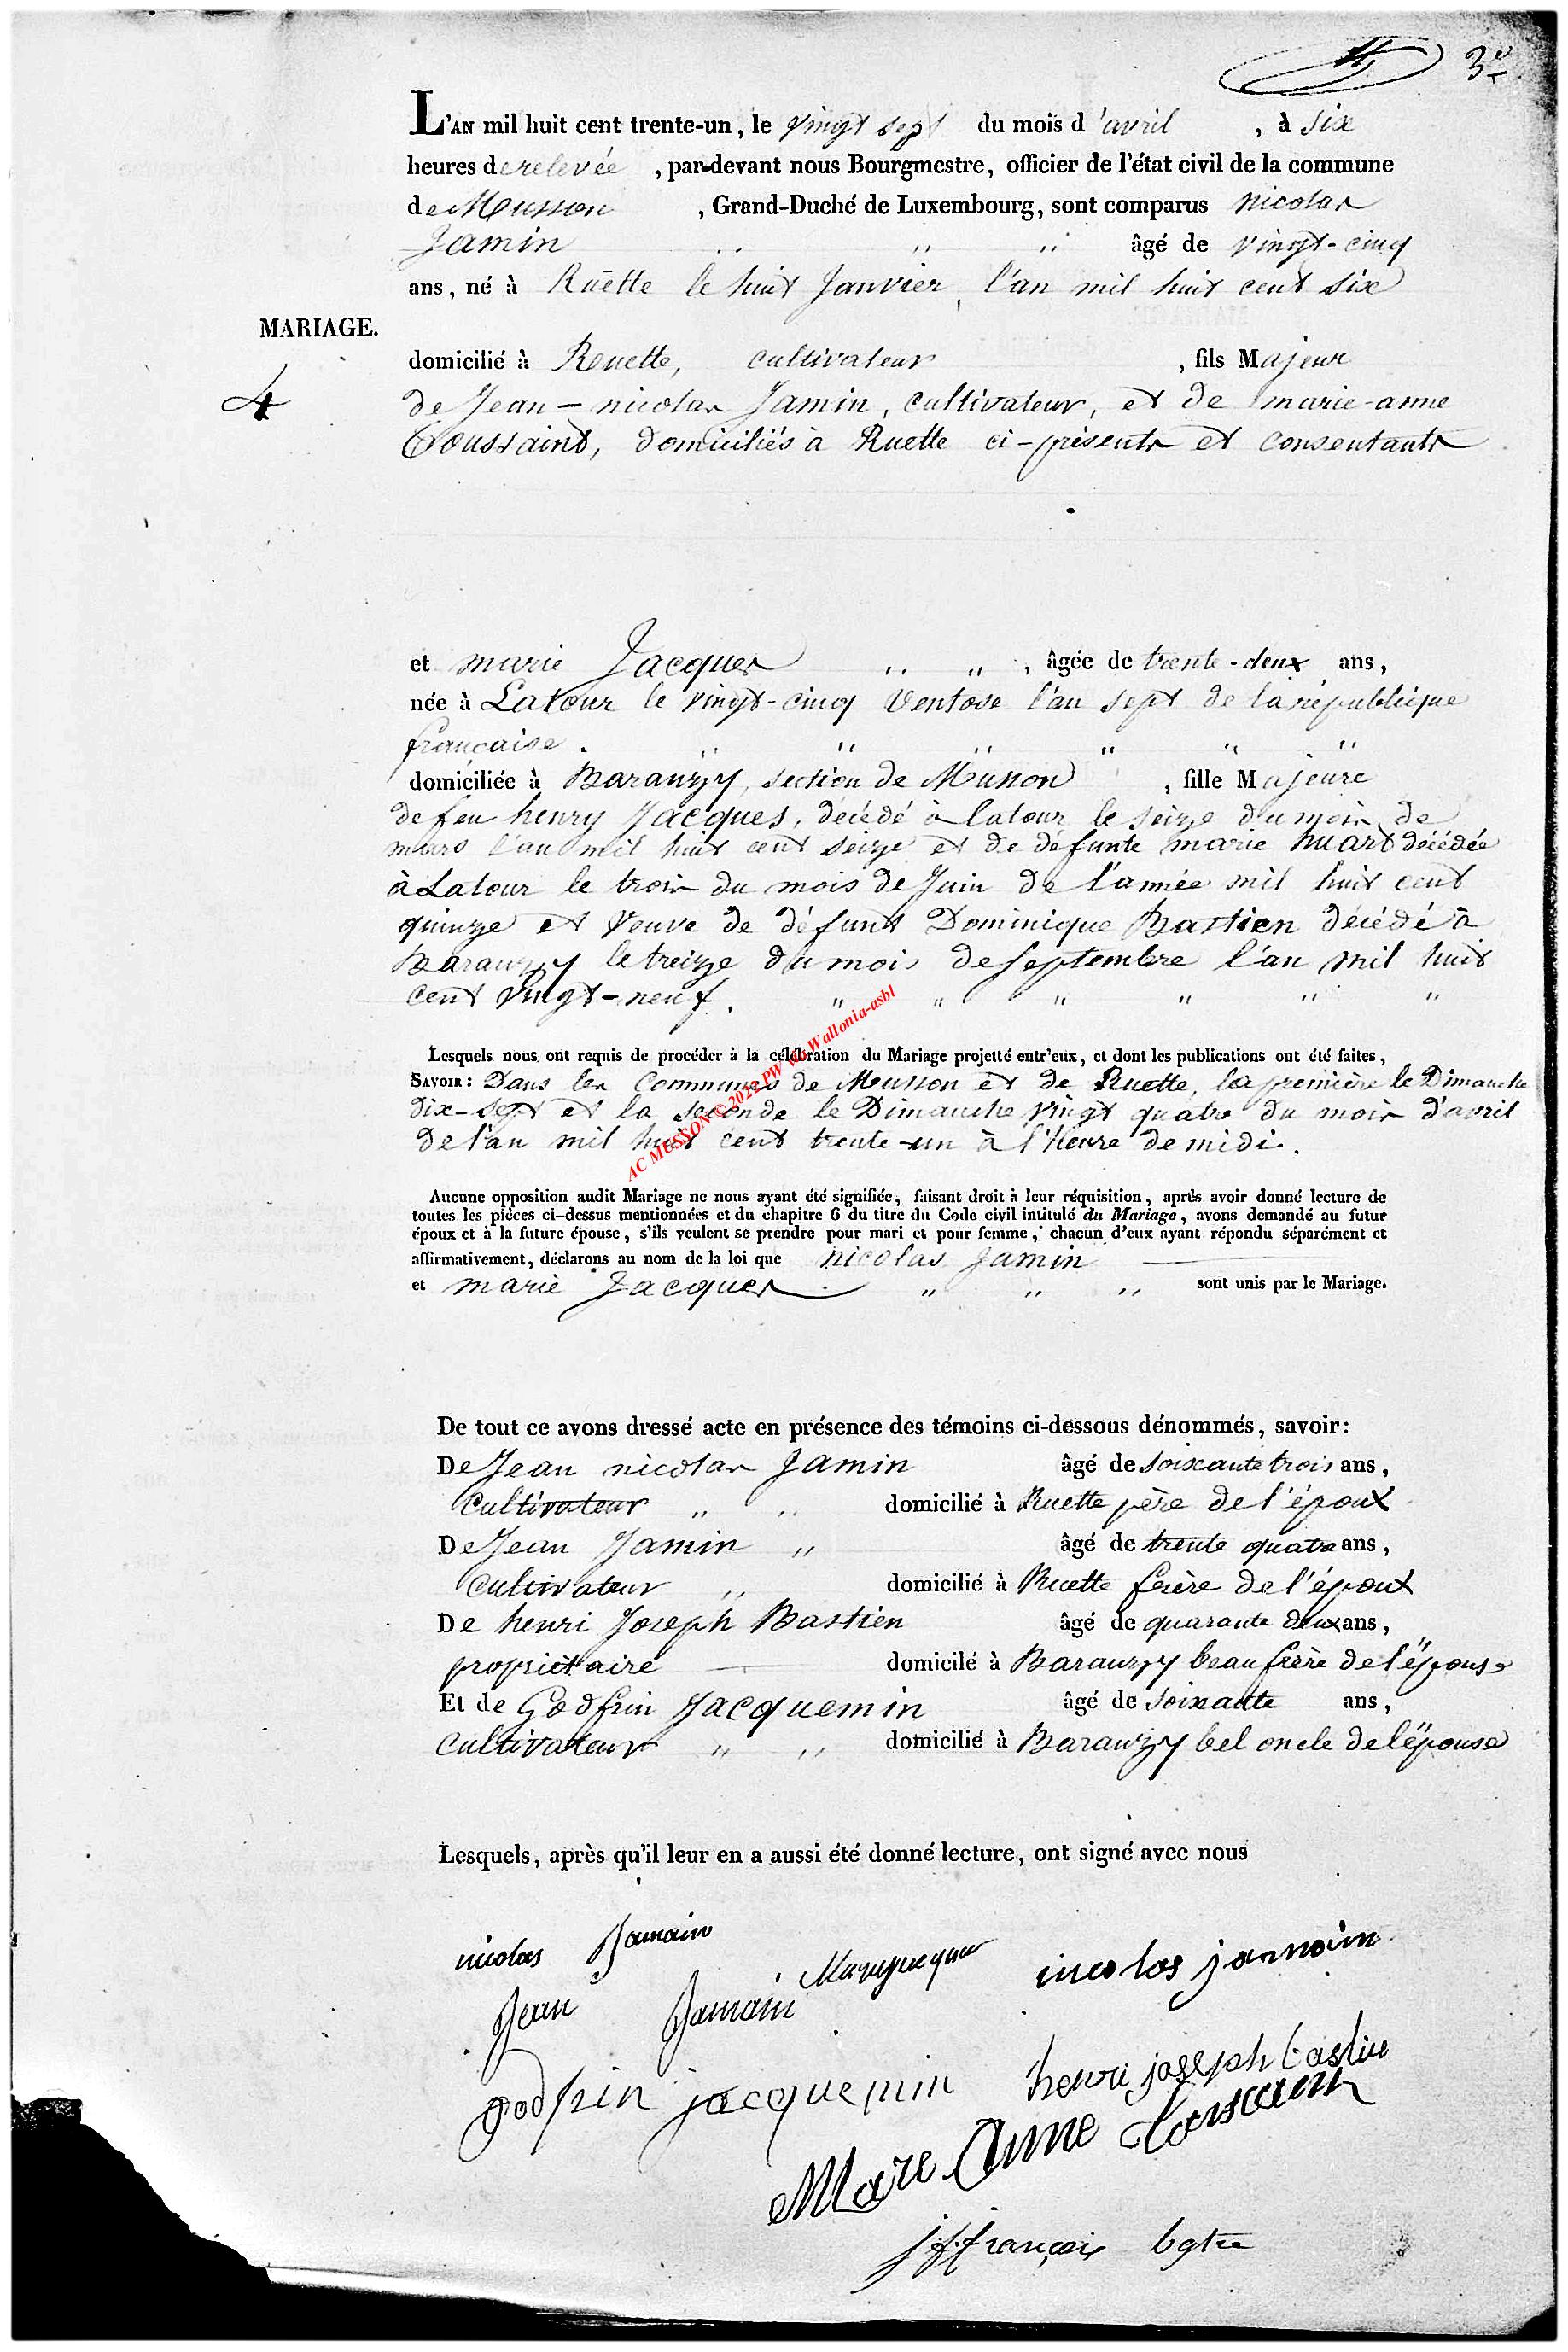 3e
L'AN mil huit cent trente-un, le vingt sept du mois d'avril, à six
heures de relevée, par-devant nous Bourgmestre, officier de l'état civil de la commune
de Musson, Grand-Duché de Luxembourg, sont comparus nicolas
Jamin " " " âgé de vingt-cinq
ans, né à Ruette le huit Janvier, l'an mil huit cent six
MARIAGE.
domicilié à Ruette, cultivateur, fils Majeur
4
de Jean-nicolas Jamin, cultivateur, et de marie-anne
Toussaint, domiciliés à Ruette ci-présents et consentants
et marie Jacques " ", âgée de trente-deux ans,
née à Latour le vingt-cinq Ventose l'an sept de la république
française. " " " " " "
domiciliée à Baranzy, section de Musson, fille Majeure
de feu henry Jacques, décédé à latour le seize du mois de
mars l'an mil huit cent seize et de défunte marie huart décédée
à Latour le trois du mois de Juin de l'année mil huit cent
quinze et Veuve de défunt Dominique Bastien décédé à
Baranzy le treize du mois de septembre l'an mil huit
cent vingt-neuf. " " " " " "
Lesquels nous ont requis de procéder à la célébration du Mariage projetté entr'eux, et dont les publications ont été faites,
SAVOIR: Dans les Communes de Musson et de Ruette, la première le Dimanche
dix-sept et la seconde le Dimanche vingt quatre du mois d'avril
de l'an mil huit cent trente-un à l'heure de midi.
AC MUSSON © 2022 PW Wallonia-asbl
Aucune opposition audit Mariage ne nous ayant été signifiée, faisant droit à leur réquisition, après avoir donné lecture de
toutes les pièces ci-dessus mentionnées et du chapitre 6 du titre du Code civil intitulé du Mariage, avons demandé au futur
époux et à la future épouse, s'ils veulent se prendre pour mari et pour femme, chacun d'eux ayant répondu séparément et
affirmativement, déclarons au nom de la loi que nicolas Jamin
et marie Jacques " " " sont unis par le Mariage.
De tout ce avons dressé acte en présence des témoins ci-dessous dénommés, savoir:
De Jean nicolas Jamin âgé de soixante trois ans,
Cultivateur " " domicilié à Ruette père de l'époux
De Jean Jamin " âgé de trente quatre ans,
Cultivateur " domicilié à Ruette frère de l'époux
De henri Joseph Bastien âgé de quarante deux ans,
propriétaire domicilé à Baranzy beau frère de l'épouse
Et de Godfrin Jacquemin âgé de soixante ans,
Cultivateur " " domicilié à Baranzy bel oncle de l'épouse
Lesquels, après qu'il leur en a aussi été donné lecture, ont signé avec nous
nicolas Jamain
nicolas jamain
Jean Jamain
henri joseph bastien
godfrin jacquemin
Mare Anne
jffrançois bgtre